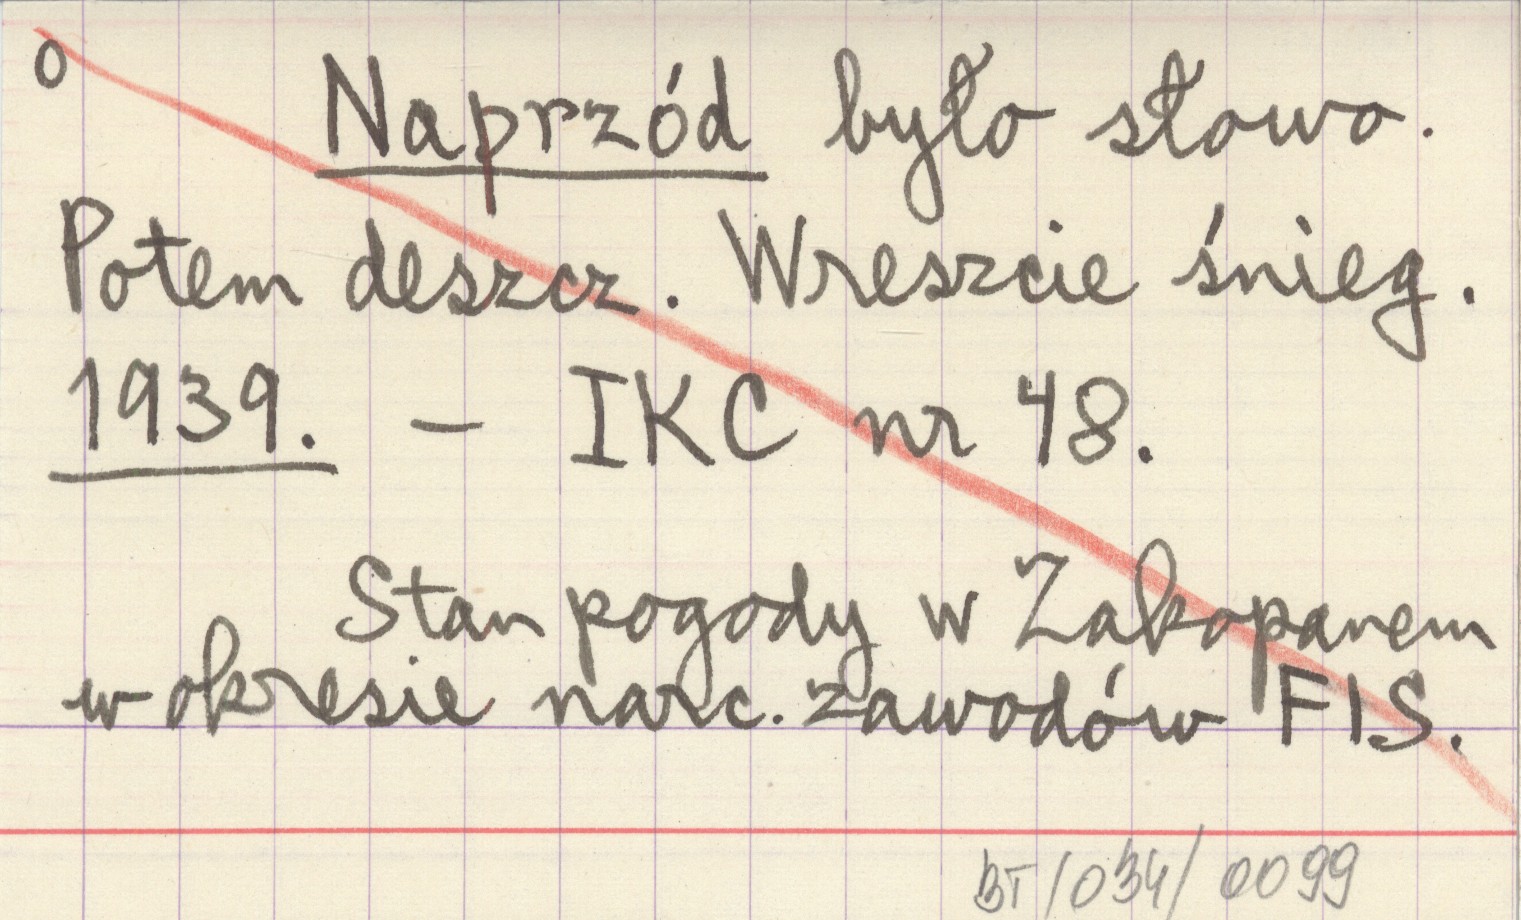 o
Naprzód było słowo.
Potem deszcz. Wreszcie śnieg.
1939. – IKC nr 48.
Stan pogody w Zakopanem
w okresie narc. zawodów FIS.
BT/034/0099